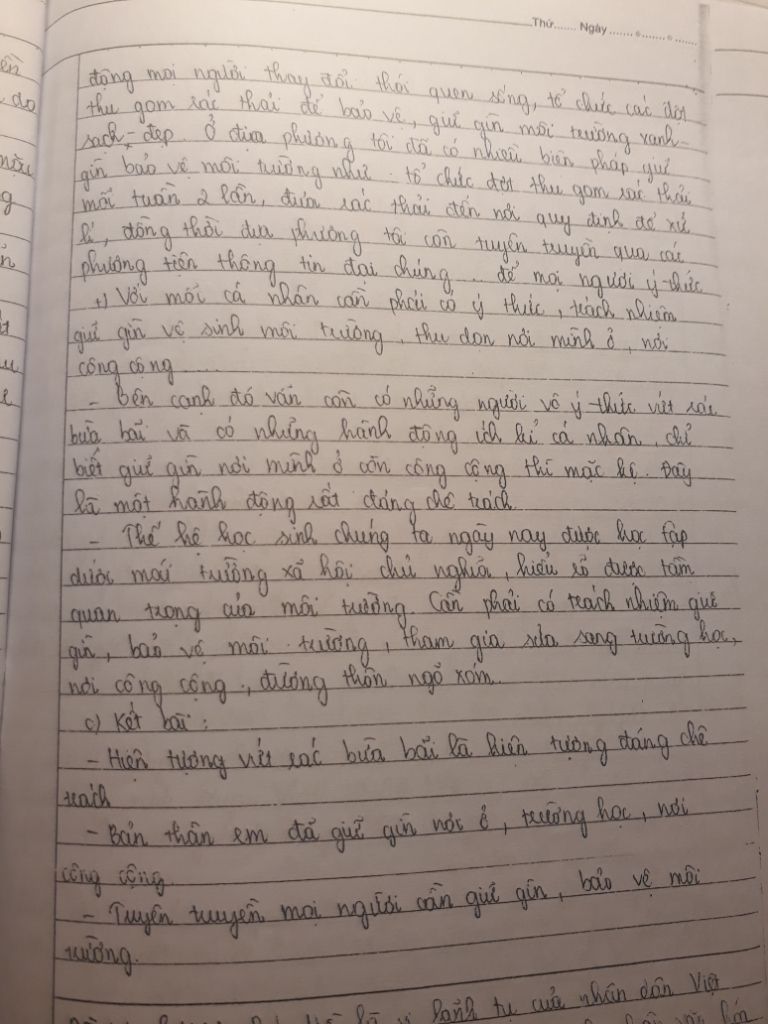 Thứ....... Ngày .......o.......o.......
động mọi người thay đổi thói quen sống, tổ chức các đợt
thu gom rác thải để bảo vệ, giữ gìn môi trường xanh-
sạch-đẹp. Ở địa phương tôi đã có nhiều biện pháp giữ
gìn bảo vệ môi trường như: tổ chức đợt thu gom rác thải
mỗi tuần 2 lần, đưa rác thải đến nơi quy định để xử
lí, đồng thời địa phương tôi còn tuyên truyền qua các
phương tiện thông tin đại chúng... để mọi người ý thức
+) Với mỗi cá nhân cần phải có ý thức, trách nhiệm
giữ gìn vệ sinh môi trường, thu dọn nơi mình ở, nơi
công cộng.....
- Bên cạnh đó vẫn còn có những người vô ý thức vứt rác
bừa bãi và có những hành động ích kỉ cá nhân, chỉ
biết giữ gìn nơi mình ở còn công cộng thì mặc kệ. Đây
là một hành động rất đáng chê trách
- Thế hệ học sinh chúng ta ngày nay được học tập
dưới mái trường xã hội chủ nghĩa, hiểu rõ được tầm
quan trọng của môi trường. Cần phải có trách nhiệm giữ
gìn, bảo vệ môi trường, tham gia sửa sang trường học,
nơi công cộng, đường thôn ngõ xóm
c) Kết bài:
- Hiện tượng vứt rác bừa bãi là hiện tượng đáng chê
trách
- Bản thân em đã giữ gìn nơi ở, trường học, nơi
công cộng
- Tuyên truyền mọi người cần giữ gìn, bảo vệ môi
trường.
lãnh tụ của nhân dân Việt